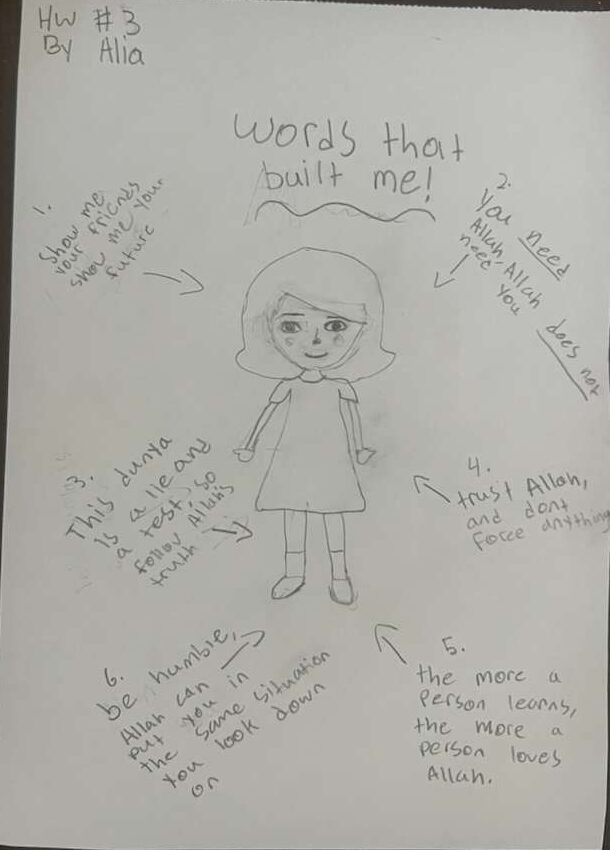 HW # 3
By Alia
words that
built me!
1.
Show me
your friends
show me your
future
2.
You need
Allah, Allah
does not
need you
3.
This dunya
is a lie and
a test, so
follow Allah's
truth
4.
trust Allah,
and dont
force anything
5.
the more a
person learns,
the more a
person loves
Allah.
6.
be humble,
Allah can
put you in
the same situation
you look down
on